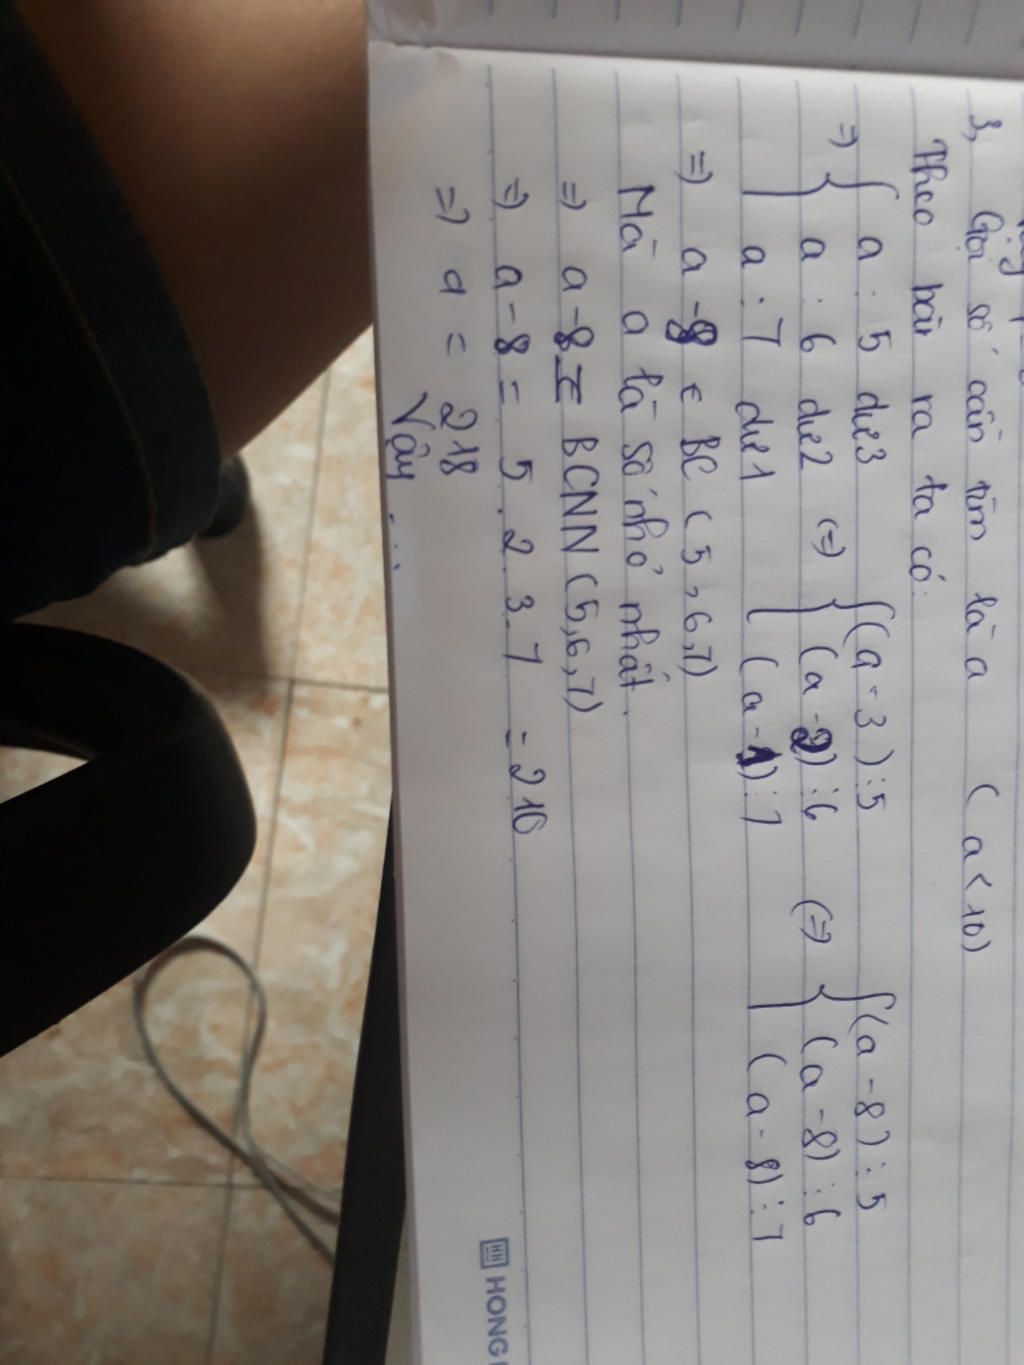 3, Gọi số cần tìm là a (a < 10)
Theo bài ra ta có:
=> { a : 5 dư 3 (=) { (a - 3) : 5 (=) { (a - 8) : 5
a : 6 dư 2 (a - 2) : 6 (a - 8) : 6
a : 7 dư 1 (a - 1) : 7 (a - 8) : 7
=) a - 8 ∈ BC (5, 6, 7)
Mà a là số nhỏ nhất.
=) a - 8 = BCNN (5, 6, 7)
=) a - 8 = 5 . 2 . 3 . 7 = 210
=) a = 218
Vậy ...
HONG